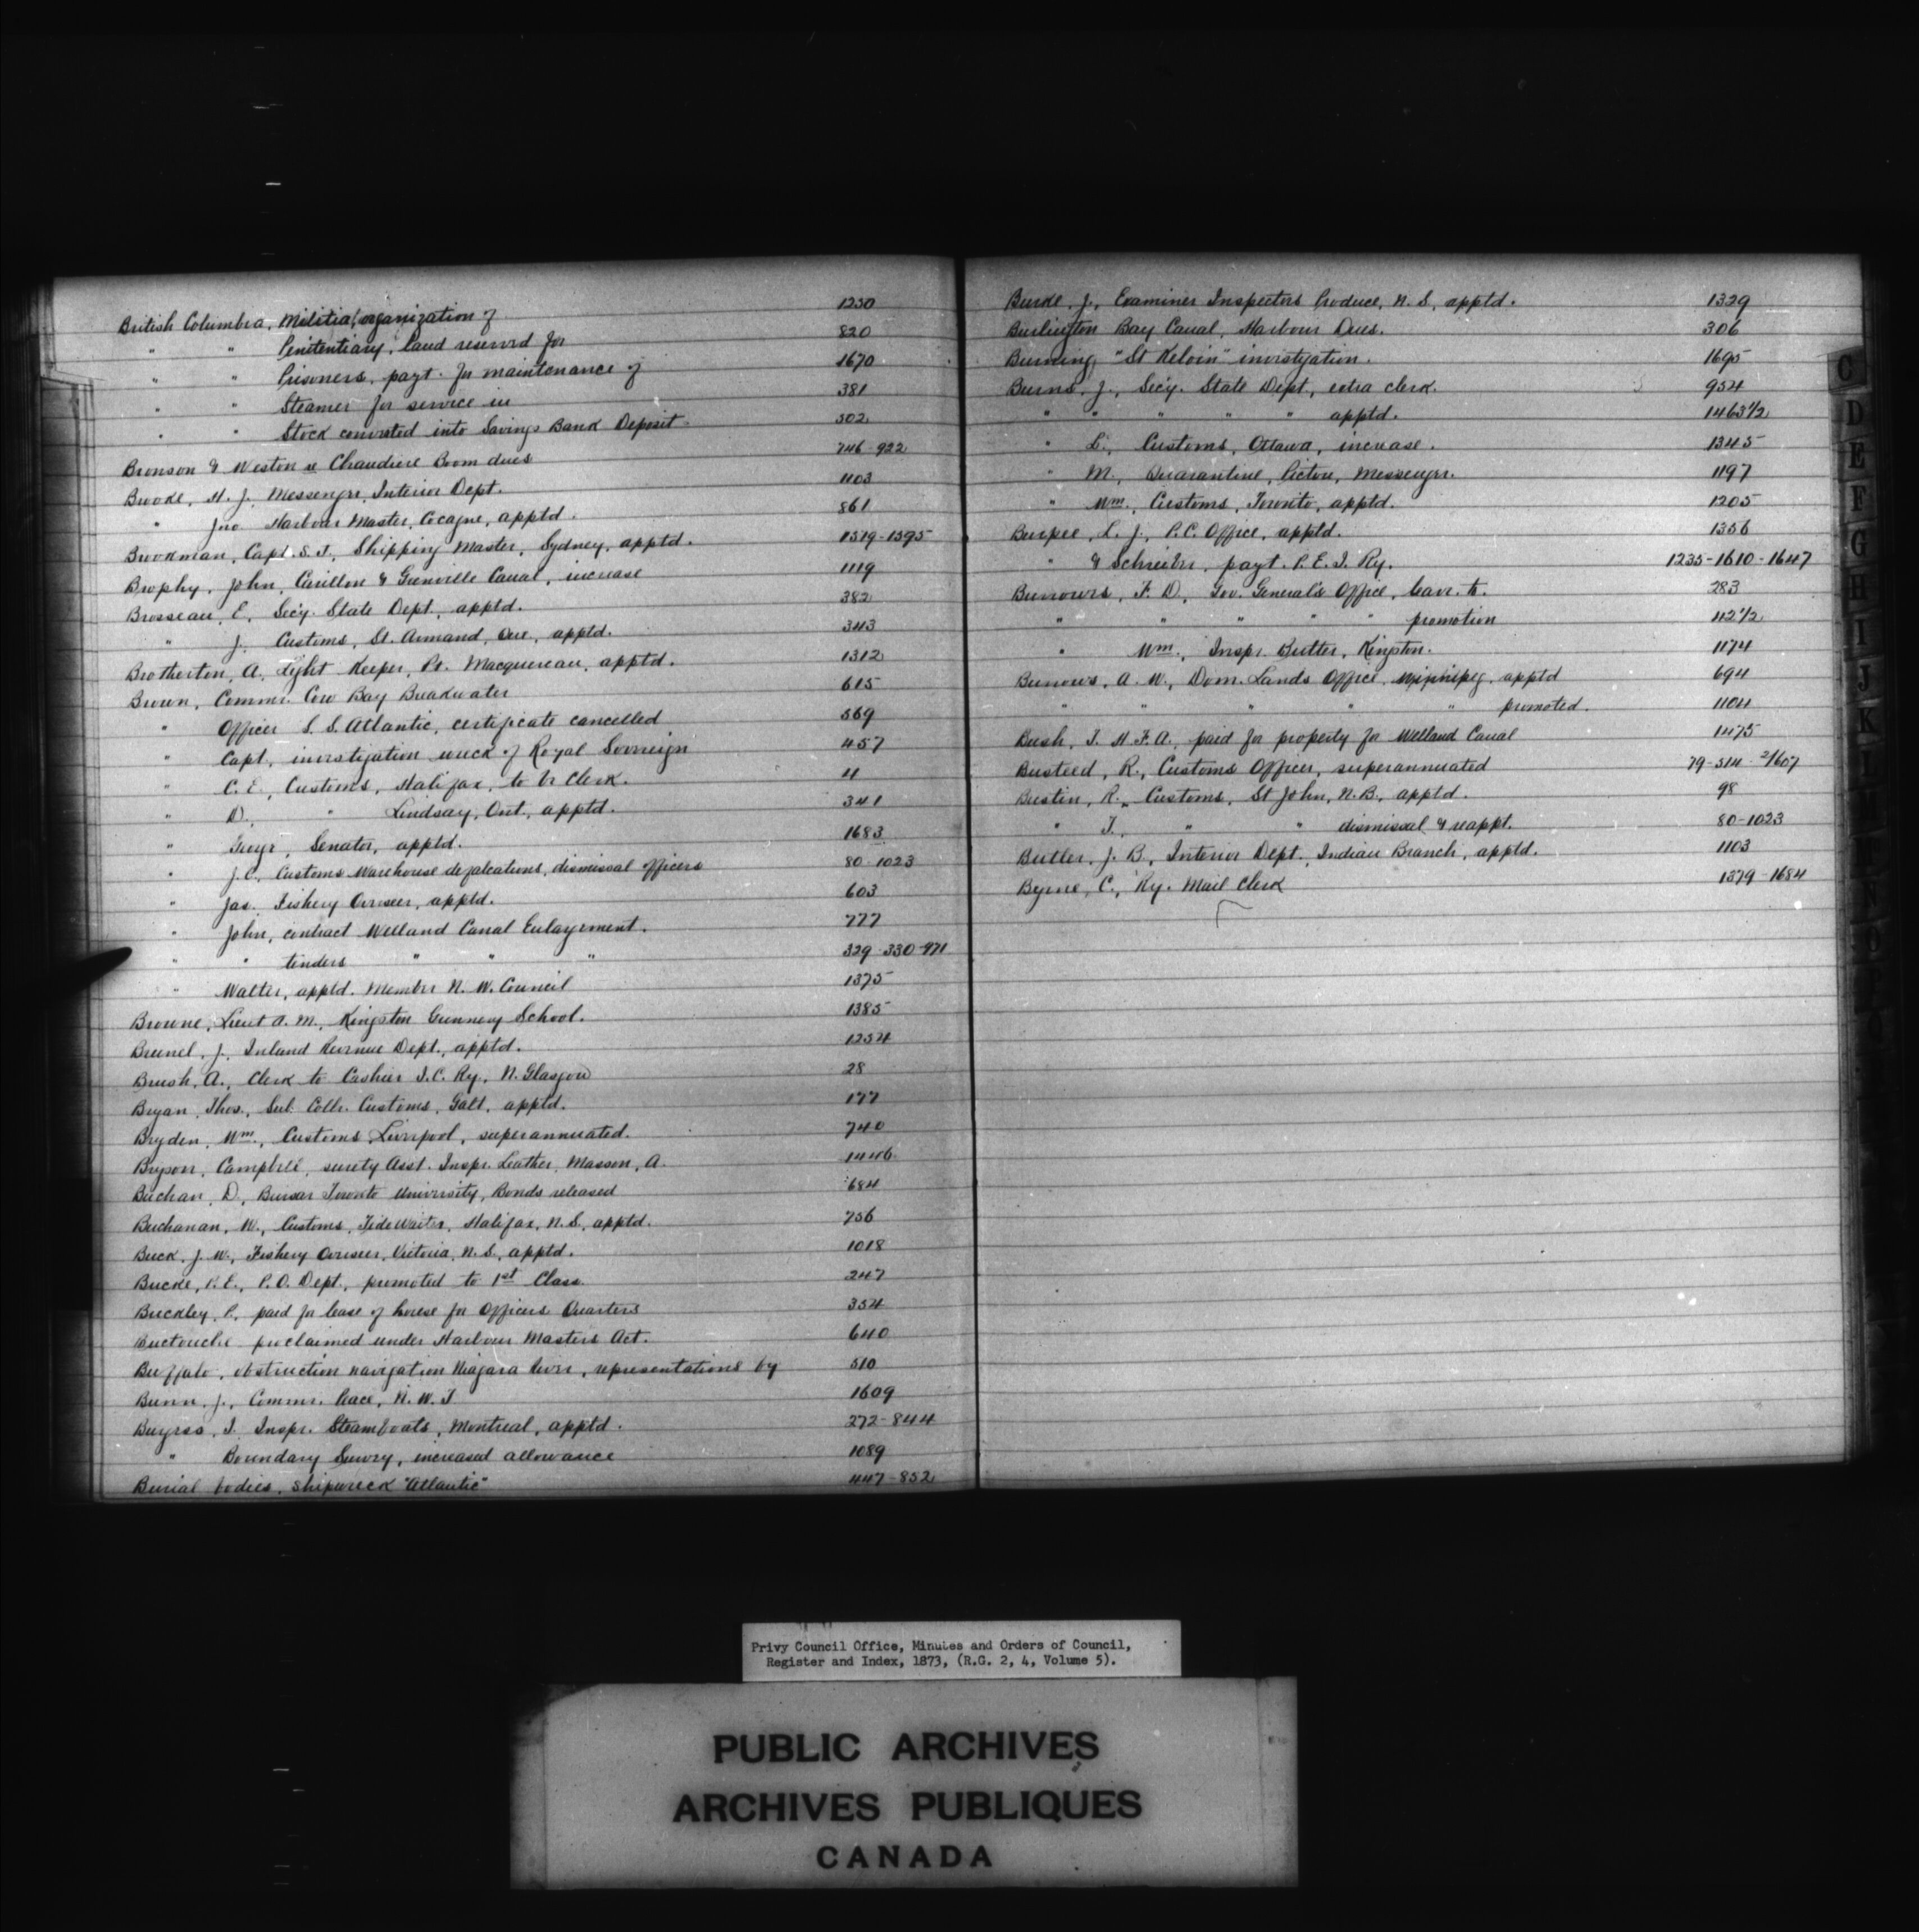 British Columbia, Militia, organization of 1230
" " Penitentiary, land reserved for 820
" " Prisoners, payt. for maintenance of 1670
" " Steamer for service in 381
" " Stock converted into Savings Bank Deposit 302
Bronson & Weston re Chaudiere Boom dues 746-922
Brooke, H. J. Messenger, Interior Dept. 1103
" Jno. Harbour Master, Cocagne, apptd. 861
Brookman, Capt. S. T., Shipping Master, Sydney, apptd. 1379-1395
Brophy, John, Carillon & Grenville Canal, increase 1119
Brosseau, E., Secy. State Dept., apptd. 382
" J. Customs, St. Armand, Que, apptd. 343
Brotherton, A., Light Keeper, Pt. Macquereau, apptd. 1312
Brown, Commr. Cow Bay Breakwater 615
" Officer S. S. Atlantic, certificate cancelled 569
" Capt., investigation wreck of Royal Sovereign 457
" C. E., Customs, Halifax, to be Clerk. 4
" D., " Lindsay, Ont., apptd. 341
" Geoge, Senator, apptd. 1683
" J. C., Customs Warehouse defalcations, dismissal officers 80-1023
" Jas. Fishery Overseer, apptd. 603
" John, contract Welland Canal Enlargement. 777
" " tenders " " " 329-330-971
" Walter, apptd. Member N. W. Council 1375
Browne, Lieut A. M., Kingston Gunnery School. 1385
Brunel, J., Inland Revenue Dept., apptd. 1254
Brush, A., Clerk to Cashier I.C. Ry., N. Glasgow 28
Bryan, Thos., Sub. Collr. Customs, Galt, apptd. 177
Bryden, Wm., Customs, Liverpool, superannuated. 740
Bryson, Campbell, surety Asst. Inspr. Leather, Masson, A. 1446
Buchan, D., Bursar Toronto University, Bonds released 684
Buchanan, W., Customs, Tide Waiter, Halifax, N. S., apptd. 756
Buck, J. W., Fishery Overseer, Victoria, N. S., apptd. 1018
Bucke, P. E., P. O. Dept., promoted to 1st Class 247
Buckley, P., paid for lease of house for Officers Quarters 354
Buctouche proclaimed under Harbour Masters Act. 640
Buffalo, obstruction navigation Niagara River, representations by 510
Bunn, J., Commr. Peace, N. W. T 1609
Burgess, T. Inspr. Steamboats, Montreal, apptd. 272-844
" Boundary Survey, increased allowance 1089
Burial bodies, shipwreck "Atlantic" 447-852
Burke, J., Examiner Inspectors Produce, N. S., apptd. 1329
Burlington Bay Canal, Harbour Dues. 306
Burning "St Kelvin" investigation. 1695
Burns, J., Secy. State Dept., extra clerk. 954
" " " " " apptd. 1463½
" L., Customs, Ottawa, increase. 1345
" M., Quarantine, Pictou, Messenger. 1197
" Wm., Customs, Toronto, apptd. 1205
Burpee, L. J., P.C. Office, apptd. 1356
" & Schreiber, payt. P. E. I. Ry. 1235-1610-1647
Burrowes, F. D., Gov. General's Office, leave to. 283
" " " " " promotion 112½
" Wm., Inspr. Butter, Kingston. 1174
Burrows, A. W., Dom. Lands Office, Winnipeg, apptd 694
" " " " " promoted. 1104
Bush, T. H. F. A., paid for property for Welland Canal 1475
Busteed, R., Customs Officer, superannuated 79-514-2/607
Bustin, R., Customs, St John, N. B., apptd. 98
" T., " " dismissal & reappt. 80-1023
Butler, J. B., Interior Dept., Indian Branch, apptd. 1103
Byrne, C., Ry. Mail Clerk 1379-1684
C
D
E
F
G
H
I
J
K
Privy Council Office, Minutes and Orders of Council,
Register and Index, 1873, (R.G. 2, 4, Volume 5).
PUBLIC ARCHIVES
ARCHIVES PUBLIQUES
CANADA